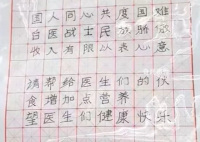 国人同心共度国难
白医战士民族脉
收入有限以表心意
请帮给医生们的伙
食增加点营养
望医生们健康快乐